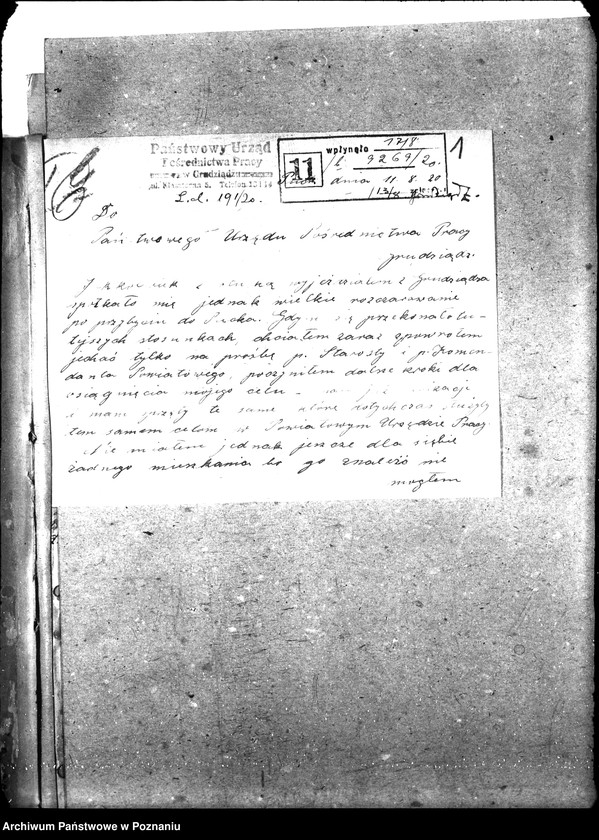 Państwowy Urząd
Pośrednictwa Pracy
w Grudziądzu
Telefon
L.d. 191/20.
11
wpłynęło 17/8
L. 9269/20.
Puck dnia 11. 8. 20
1
Do
Państwowego Urzędu Pośrednictwa Pracy
Grudziądz.
wyjeżdżałem z Grudziądza
spotkało mię jednak wielkie rozczarowanie
po przybyciu do Pucka. Gdym się przekonał o tu-
tejszych stosunkach, chciałem zaraz spowrotem
jechać tylko na prośbę p. Starosty i p. Komen-
danta Powiatowego, poczyniłem dalsze kroki dla
osiągnięcia mojego celu
i mam te same które dotychczas służyły
tem samem celom w Powiatowym Urzędzie Pracy.
Nie miałem jednak jeszcze dla siebie
żadnego mieszkania bo go znaleźć nie
mogłem
Archiwum Państwowe w Poznaniu